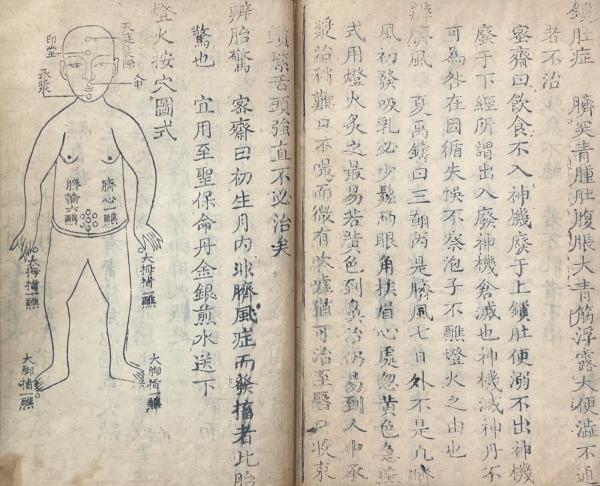 鎖肚症 臍突青腫肚腹脹大青筋浮露大便澁不通
者不治
密齋曰飲食不入神機廢于上鎖肚便溺不出神機
廢于下經所謂出入廢神機倉滅也神機滅神丹不
可為咎在因循失悞不察泡子不醮燈火之由也
辨臍風 夏禹鑄曰三朝內是臍風七日外不是凡臍
風初發吸乳必少鬆兩眼角挨眉心處忽黃色急
式用燈火炙之最易若黃色到鼻治仍易到人中承
漿治稍難口不噤而微有吹噓猶可治至唇口收束
鎖緊舌頭強直不必治矣
辨胎驚 密齋曰初生月內非臍風症而發搐者此胎
驚也 宜用至聖保命丹金銀煎水送下
燈火按穴圖式
印堂
承漿
人中
臍輪六醮
臍心一醮
大拇指一醮
大拇指一醮
大脚指一醮
大脚指一醮